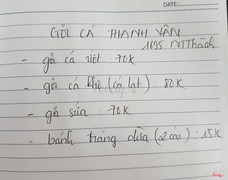 DATE:
GỎI CÁ THANH VÂN
1695 Ntthành
- gỏi cá việt: 70k
- gỏi cá khô (cá lạt): 80k
- gỏi sứa: 70k
- bánh tráng dừa (2 cái): 15k